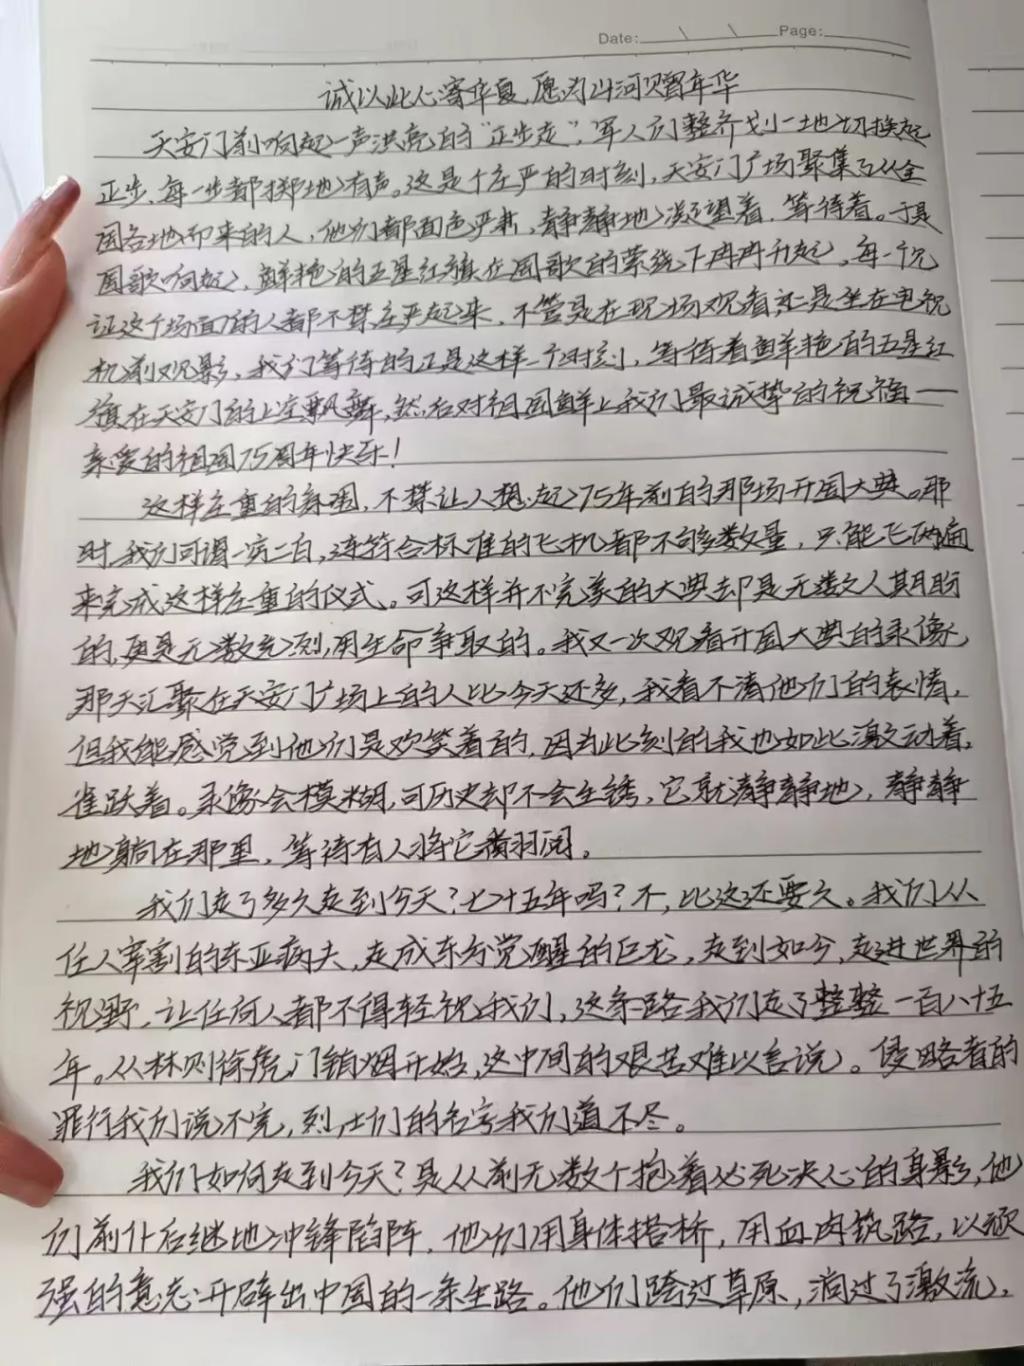 Date: Page:
诚以此心寄华夏,愿为山河赠年华
天安门前响起一声洪亮的“正步走”,军人们整齐划一地切换起
正步,每一步都掷地有声。这是个庄严的时刻,天安门广场聚集了从全
国各地而来的人,他们都面色严肃,静静地凝望着,等待着。于是
国歌响起,鲜艳的五星红旗在国歌的萦绕下冉冉升起,每一个见
证这个场面的人都不禁庄严起来,不管是在现场观看还是坐在电视
机前观影,我们等待的正是这样一个时刻,等待着鲜艳的五星红
旗在天安门的上空飘舞,然后对祖国鲜上我们最诚挚的祝福——
亲爱的祖国75周年快乐!
这样庄重的氛围,不禁让人想起75年前的那场开国大典。那
时,我们可谓一穷二白,连符合标准的飞机都不够数量,只能飞两遍
来完成这样庄重的仪式。可这样并不完美的大典却是无数人期盼
的,更是无数先烈用生命争取的。我又一次观看开国大典的录像,
那天汇聚在天安门广场上的人比今天还多,我看不清他们的表情,
但我能感觉到他们是欢笑着的,因为此刻的我也如此激动着,
雀跃着。录像会模糊,可历史却不会生锈,它就静静地,静静
地躺在那里,等待有人将它翻阅。
我们走了多久走到今天?七十五年吗?不,比这还要久。我们从
任人宰割的东亚病夫,走成东方觉醒的巨龙,走到如今,走进世界的
视野,让任何人都不得轻视我们,这条路我们走了整整一百八十五
年。从林则徐虎门销烟开始,这中间的艰苦难以言说。侵略者的
罪行我们说不完,烈士们的名字我们道不尽。
我们如何走到今天?是从前无数个抱着必死决心的身影,他
们前仆后继地冲锋陷阵,他们用身体搭桥,用血肉筑路,以顽
强的意志开辟出中国的一条生路。他们跨过草原,淌过了激流,